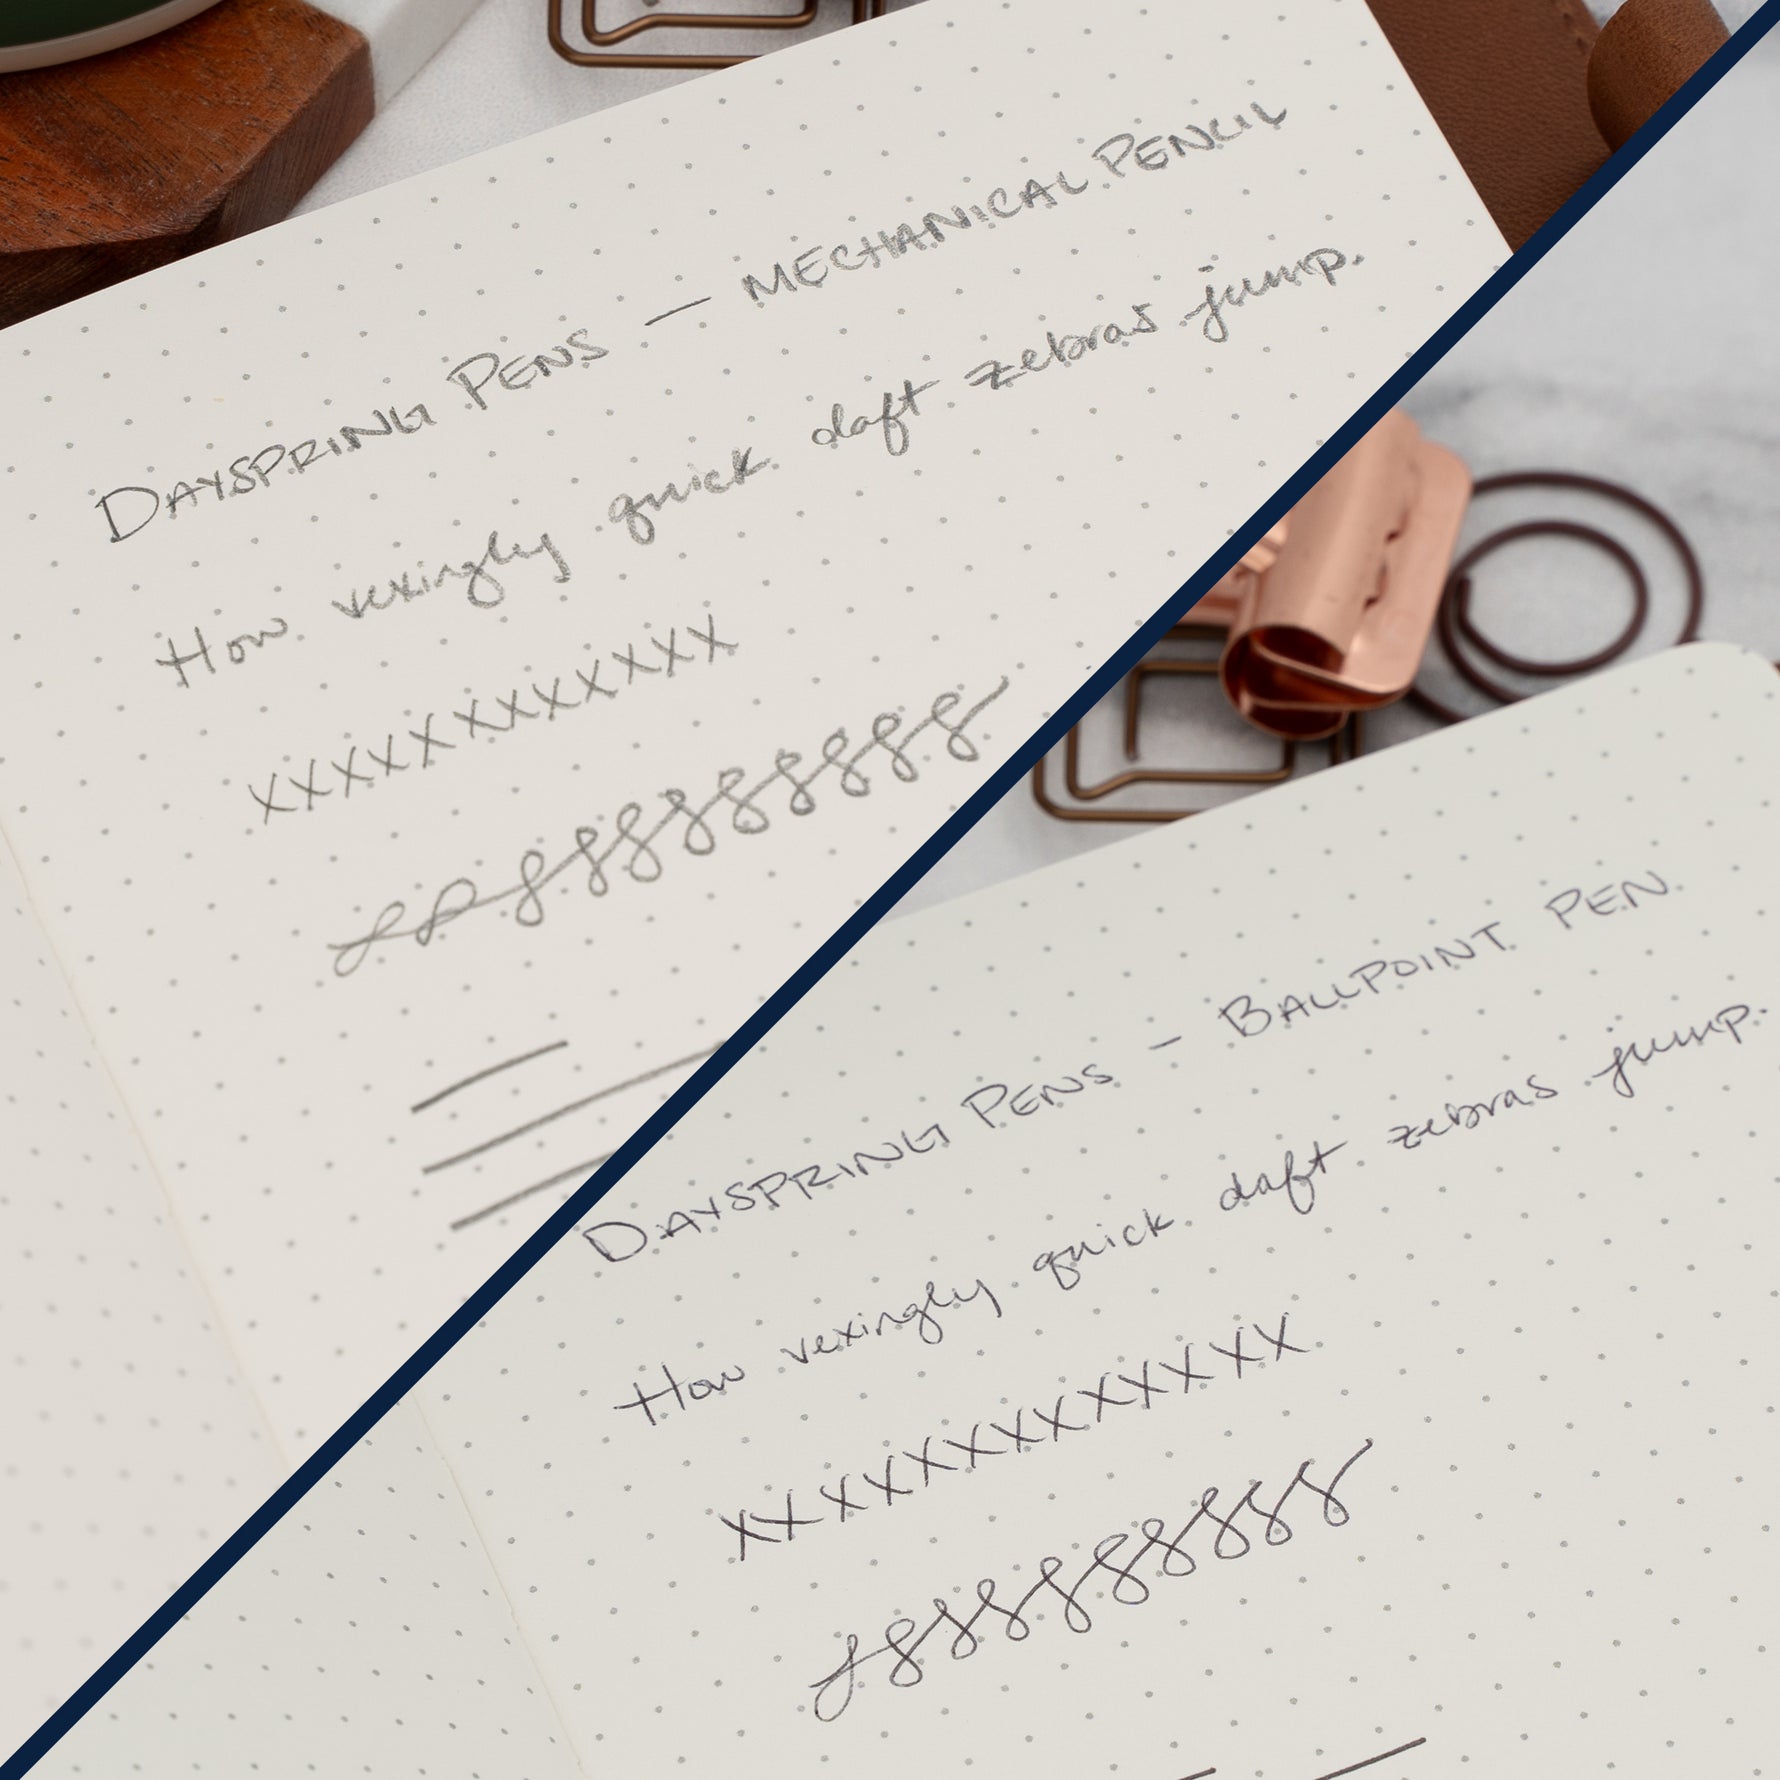 DAYSPRING PENS — MECHANICAL PENCIL
How vexingly quick daft zebras jump.
XXXXXXXXXXXX
DAYSPRING PENS - BALLPOINT PEN
How vexingly quick daft zebras jump.
XXXXXXXXXXXX